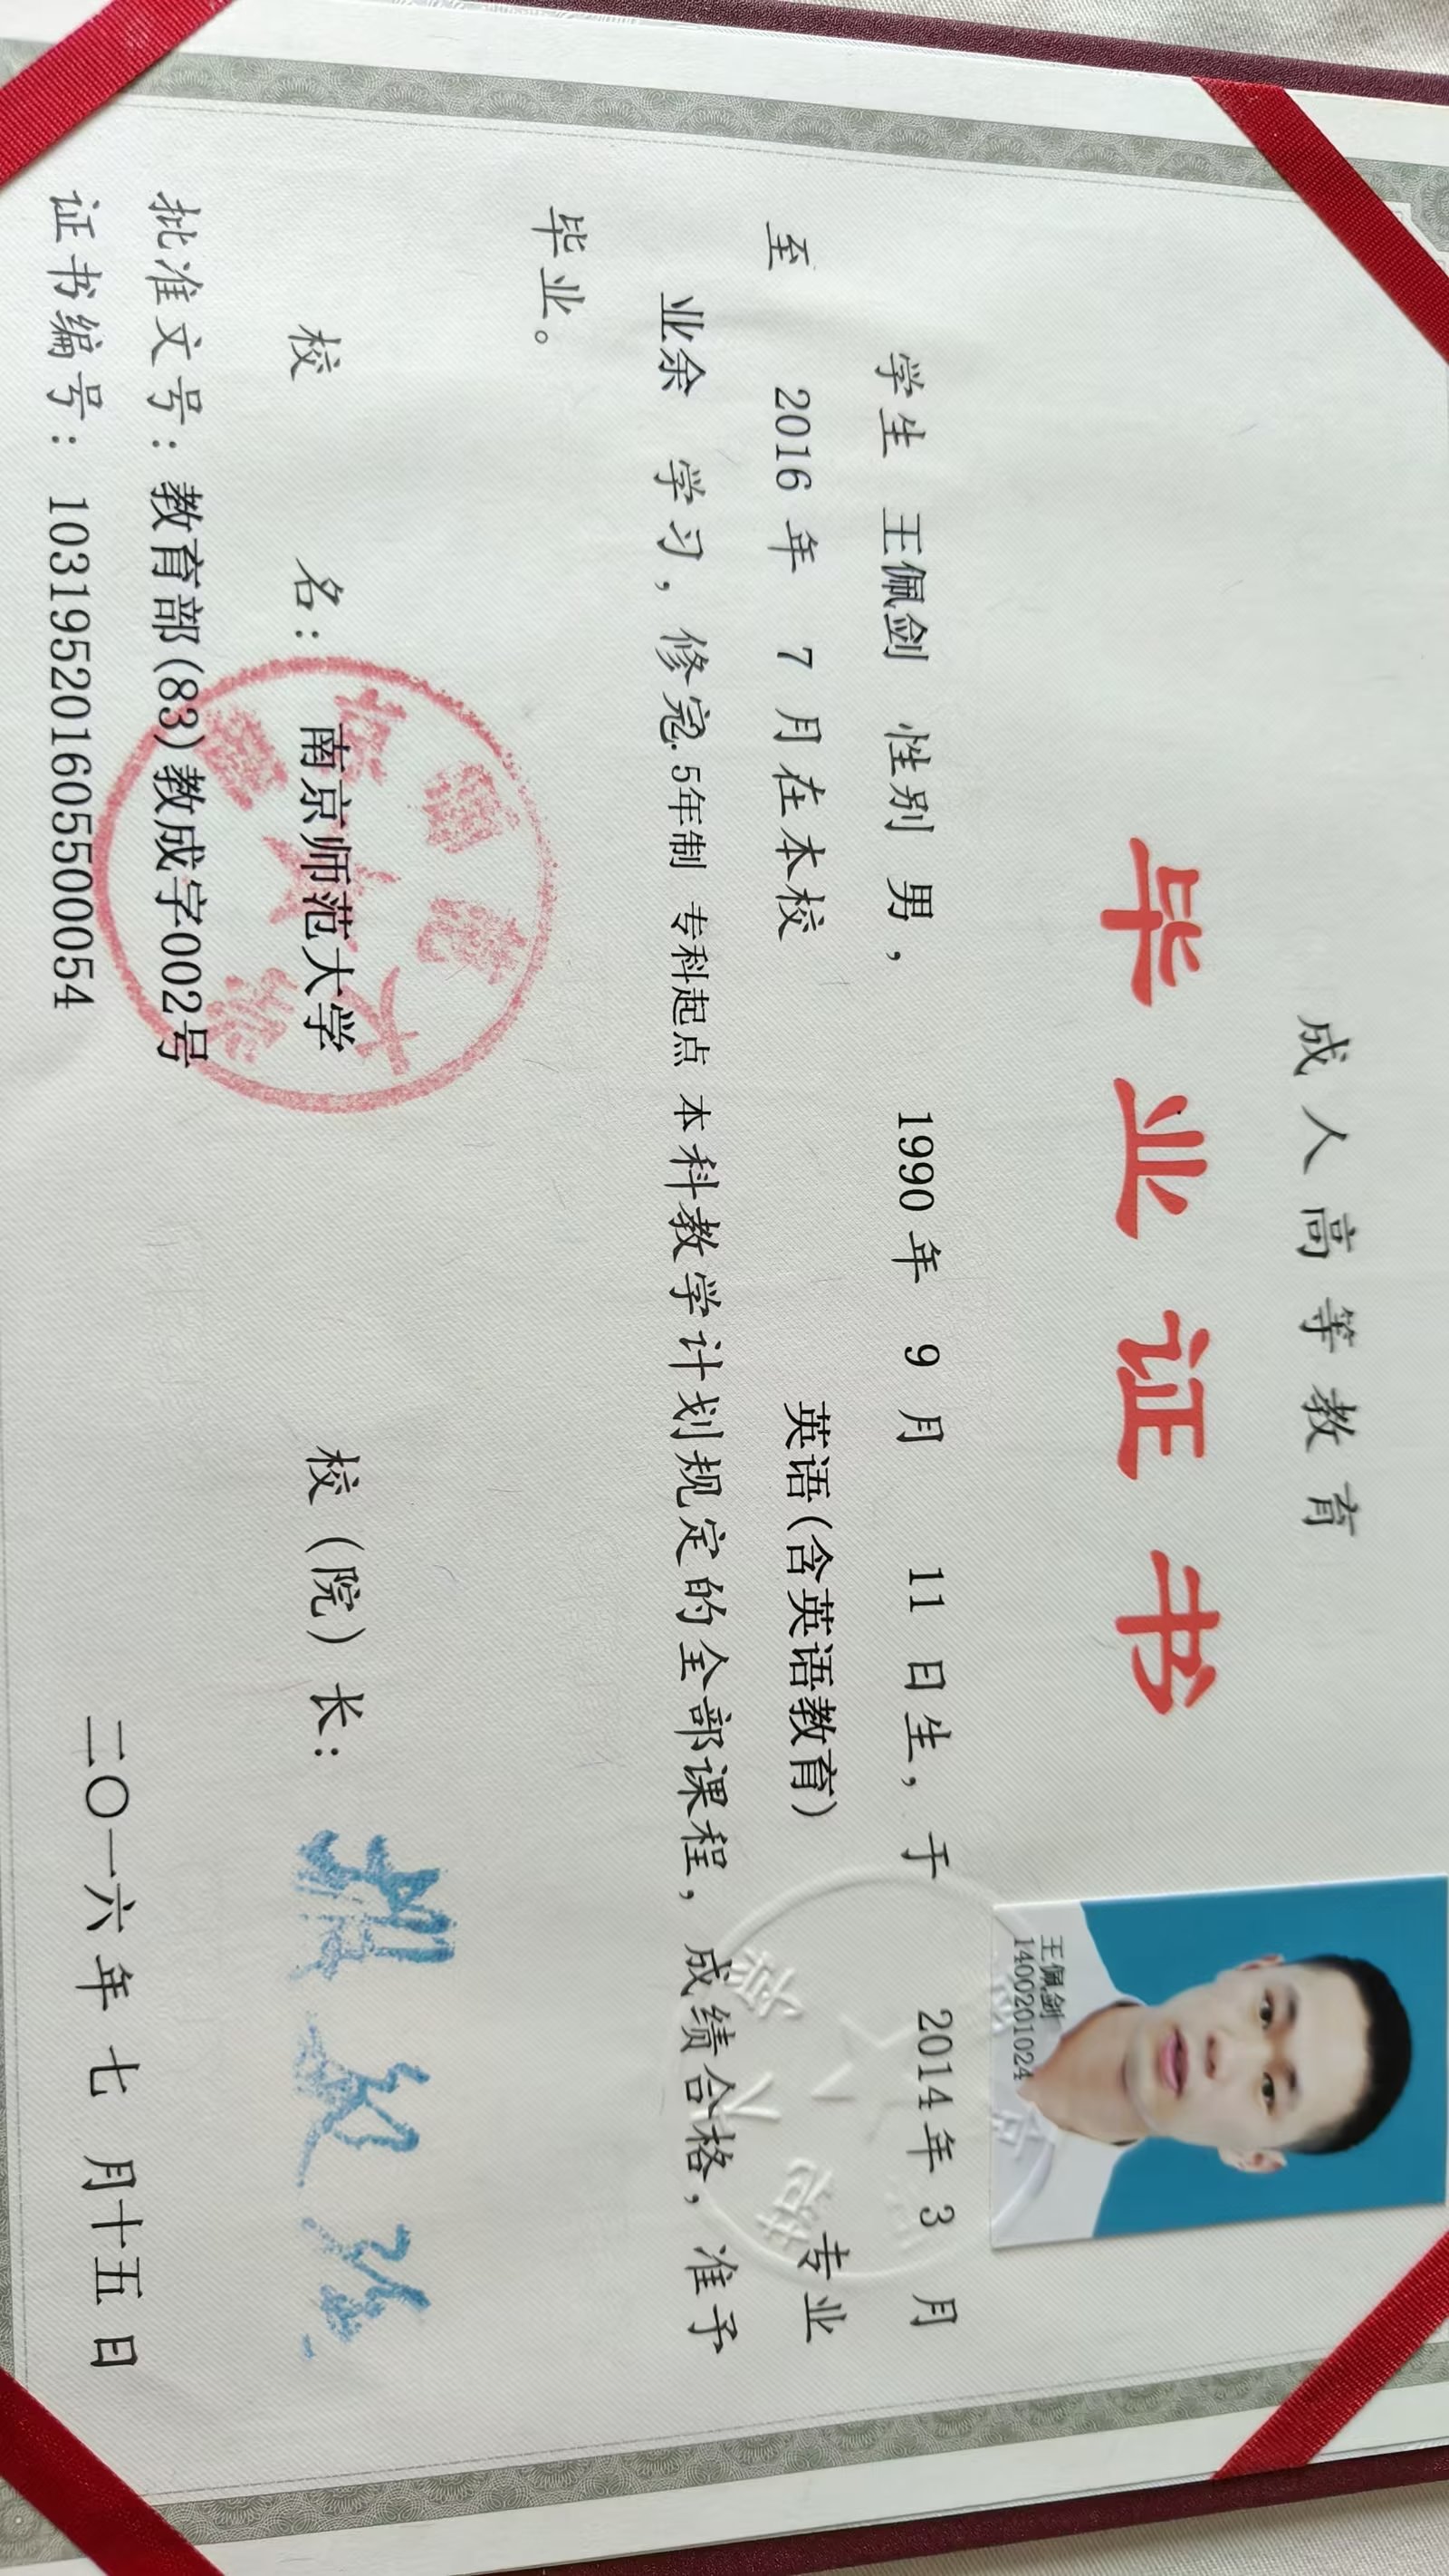 成人高等教育
毕业证书
王佩剑
1400201024
学生 王佩剑 性别 男， 1990 年 9 月 11 日生，于 2014 年 3 月
至 2016 年 7 月在本校 英语(含英语教育) 专业
业余 学习，修完2.5年制 专科起点 本科教学计划规定的全部课程，成绩合格，准予
毕业。
校 名： 南京师范大学 校（院）长：
批准文号：教育部(83)教成字002号
证书编号： 103195201605500054 二〇一六年 七 月十五 日